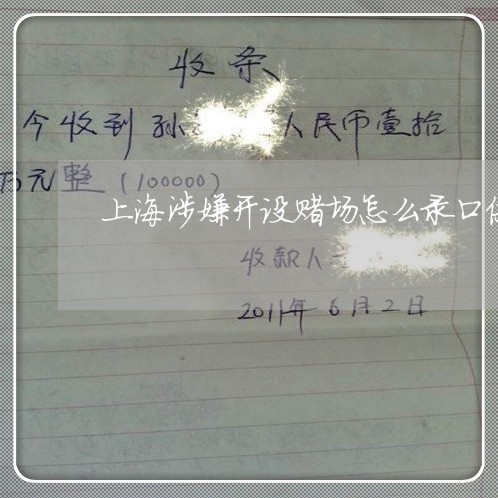 收条
今收到孙 人民币壹拾
万元整（100000）
上海涉嫌开设赌场怎么录口
收款人
2011年6月2日